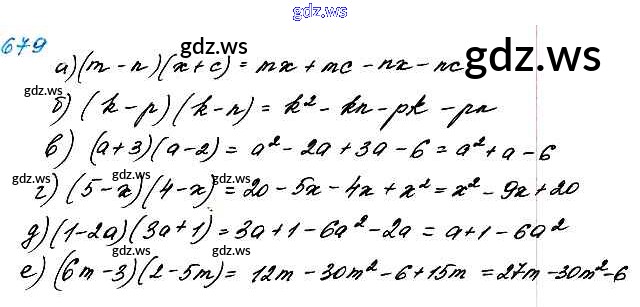 gdz.ws
679
gdz.ws gdz.ws gdz.ws
а) (m - n)(x + c) = mx + mc - nx - nc
б) (k - p)(k - n) = k² - kn - pk - pn
в) (a + 3)(a - 2) = a² - 2a + 3a - 6 = a² + a - 6
gdz.ws gdz.ws gdz.ws
г) (5 - x)(4 - x) = 20 - 5x - 4x + x² = x² - 9x + 20
д) (1 - 2a)(3a + 1) = 3a + 1 - 6a² - 2a = a + 1 - 6a²
gdz.ws gdz.ws gdz.ws
е) (6m - 3)(2 - 5m) = 12m - 30m² - 6 + 15m = 27m - 30m² - 6
gdz.ws